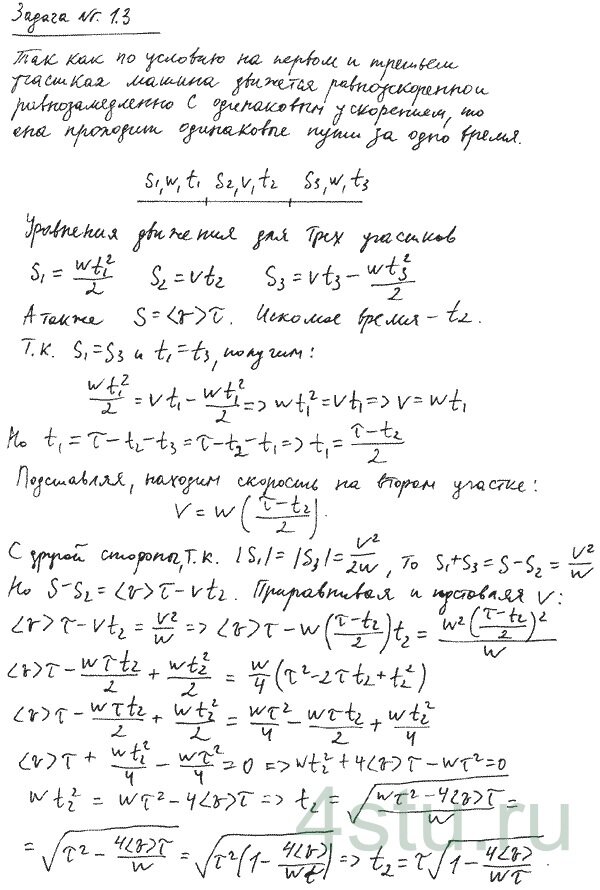 Задача №. 1.3
Так как по условию на первом и третьем
участкая машина движется равноускоренно и
равнозамедленно с одинаковым ускорением, то
она проходит одинаковые пути за одно время.
S₁,w,t₁ S₂,v,t₂ S₃,w,t₃
Уравнения движения для трех участков
S₁ = wt₁²/2 S₂ = vt₂ S₃ = vt₃ - wt₃²/2
А также S = <v>τ. Искомое время - t₂.
Т.к. S₁ = S₃ и t₁ = t₃, получим:
wt₁²/2 = vt₁ - wt₁²/2 => wt₁² = vt₁ => v = wt₁
Но t₁ = τ - t₂ - t₃ = τ - t₂ - t₁ => t₁ = (τ - t₂)/2
Подставляя, находим скорость на втором участке:
v = w((τ - t₂)/2).
С другой стороны, т.к. |S₁| = |S₃| = v²/2w, то S₁ + S₃ = S - S₂ = v²/w
Но S - S₂ = <v>τ - vt₂. Приравнивая и подставляя v:
<v>τ - vt₂ = v²/w => <v>τ - w((τ - t₂)/2)t₂ = w²((τ - t₂)/2)²/w
<v>τ - wτt₂/2 + wt₂²/2 = w/4(τ² - 2τt₂ + t₂²)
<v>τ - wτt₂/2 + wt₂²/2 = wτ²/4 - wτt₂/2 + wt₂²/4
<v>τ + wt₂²/4 - wτ²/4 = 0 => wt₂² + 4<v>τ - wτ² = 0
wt₂² = wτ² - 4<v>τ => t₂ = √((wτ² - 4<v>τ)/w) =
= √(τ² - 4<v>τ/w) = √(τ²(1 - 4<v>/wτ)) => t₂ = τ√(1 - 4<v>/wτ).
4stu.ru